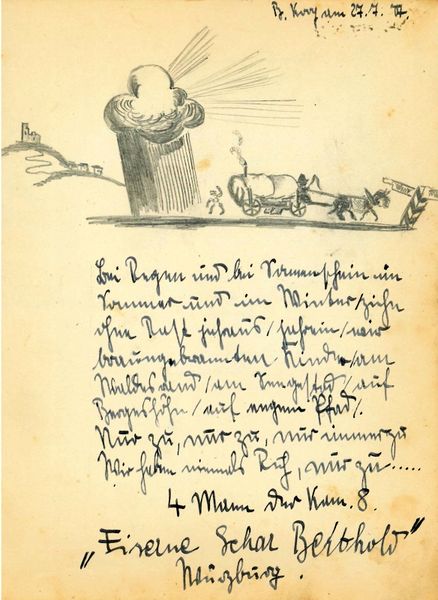 am 27.7.
Bei Regen und bei Sonnenschein im
Sommer und im Winter/ziehn
ohne Rast jahraus/jahrein/wir
braungebrannten Kinder/am
Waldesrand/am Seegestad/auf
Bergeshöhn/auf engem Pfad/.
Nur zu, nur zu, nur immerzu
Wir haben niemals Ruh, nur zu.....
4 Mann der Kam. 8.
„Eiserne Schar Berthold"
Würzburg.